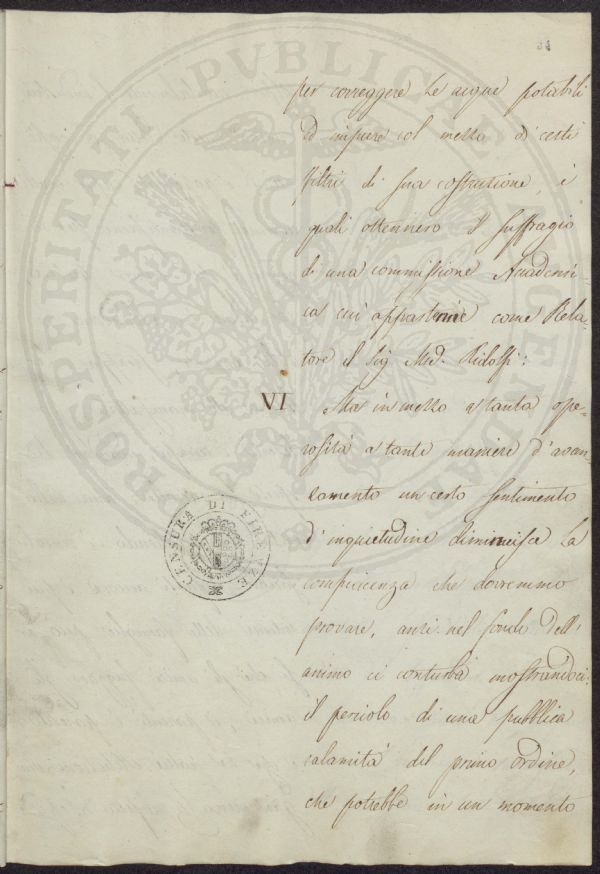 per correggere le acque potabili
ed impure col mezzo di certi
filtri di sua costruzione, i
quali ottennero il suffragio
di una commissione Academi-
ca cui appartenne come Rela-
tore il Sig. Ridolfi:
VI Ma in mezzo a tanta ope-
rosità a tante maniere d'avan-
zamento un certo sentimento
d'inquietudine diminuisce la
compiacenza che dovremmo
provare, anzi nel fondo dell'
animo ci conturba mostrandoci
il pericolo di una pubblica
calamità del primo ordine,
che potrebbe in un momento
CENSURA DI FIRENZE
PROSPERITATI PUBLICAE AUGENDAE